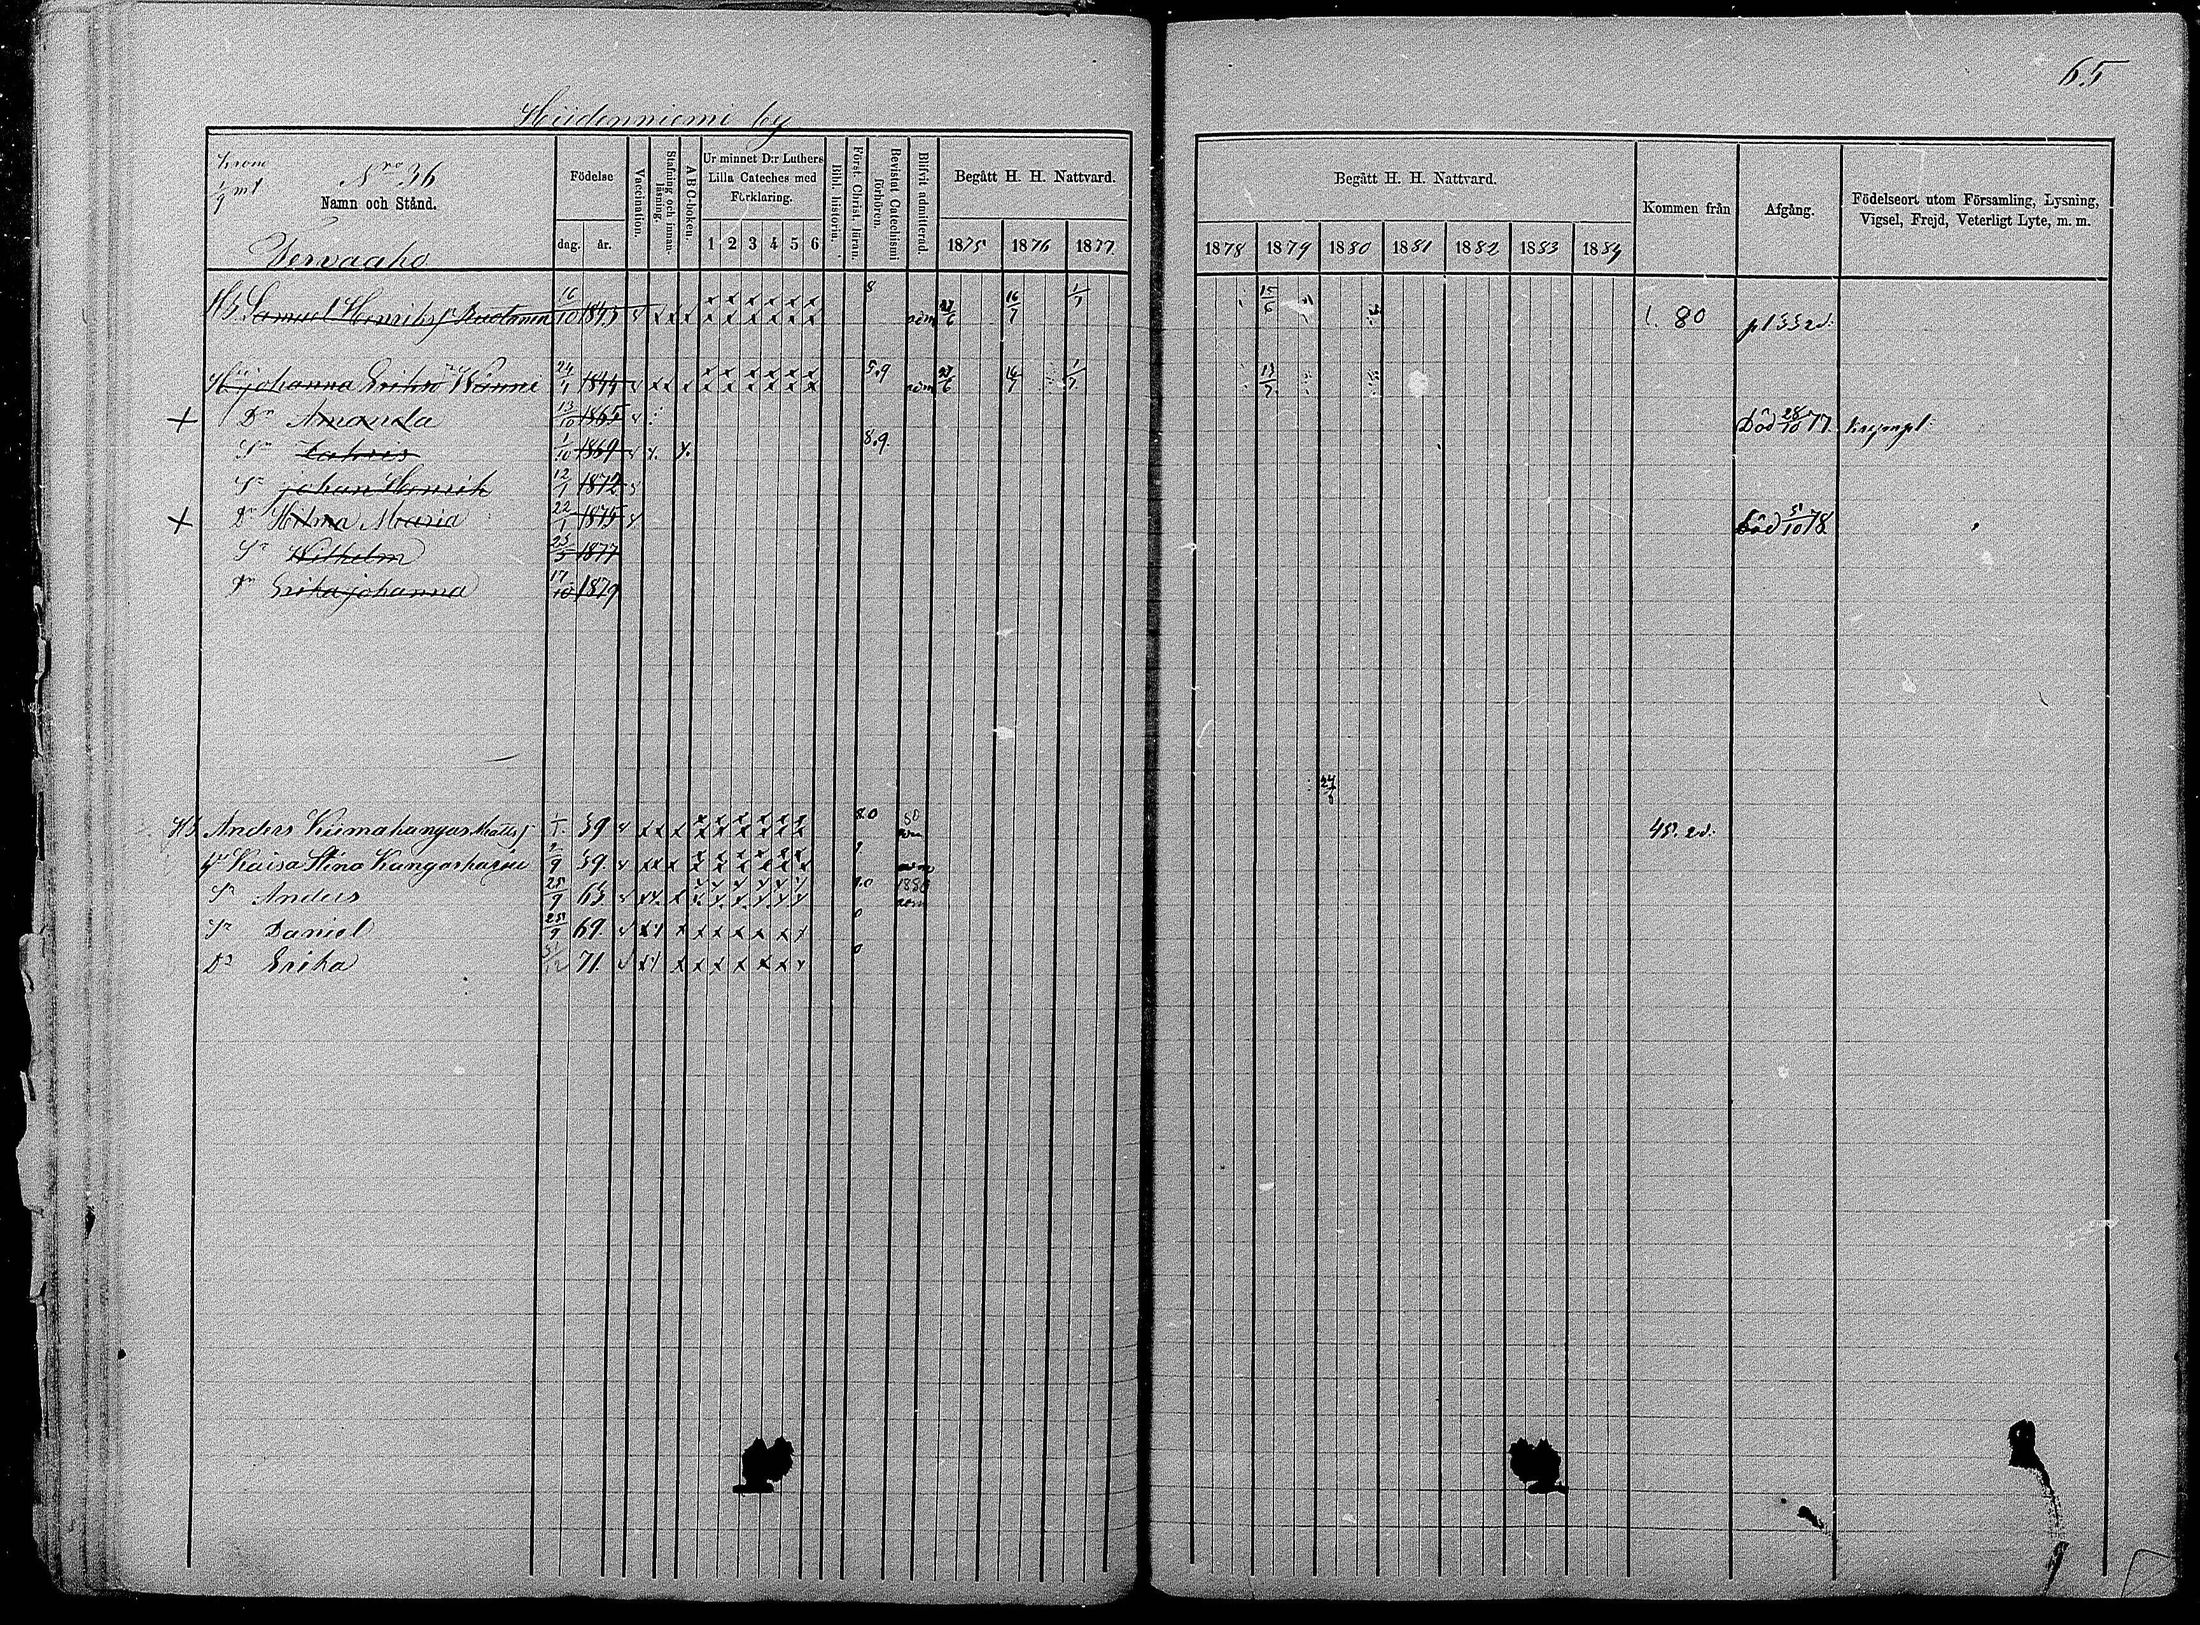 65
Hiidenniemi by
Krono
1/9 mt
Nro 36
Namn och Stånd.
Tervaaho
Födelse
dag. år.
Vaccination.
Stafning och innan-läsning.
A B C-boken.
Ur minnet D:r Luthers Lilla Cateches med Förklaring.
1 2 3 4 5 6
Bibl. historia.
Först. Christ. läran.
Bevistat Catechismi förhören.
Blifvit admitterad.
Begått H. H. Nattvard.
1875 1876 1877
Begått H. H. Nattvard.
1878 1879 1880 1881 1882 1883 1884
Kommen från
Afgång.
Födelseort utom Församling, Lysning, Vigsel, Frejd, Veterligt Lyte, m. m.
Samuel Henrikss. 16/10 1843 8 27/6 16/7 1/7 15/6 80
Hu Johanna Eriksdr 24/1 1844 5.9 27/6 16/7 1/7 13/7
+ Dr Amanda 13/10 1865 Död 28/10 77.
Sn Zakris 1/10 1869 8.9
Sn Johan Henrik 12/1 1872
+ Dr Hilma Maria 22/1 1875 Död 5/10 78
Sn Wilhelm 25/5 1877
Dr Erika Johanna 17/10 1879
24/6
Anders Kiimakangas Matts. 1/1 39 80 80 45. 2d.
Hu Kaisa Stina Kangasharju 2/9 39.
Sn Anders 25/9 63 1880
Sn Daniel 25/9 69
Dr Erika 31/12 71